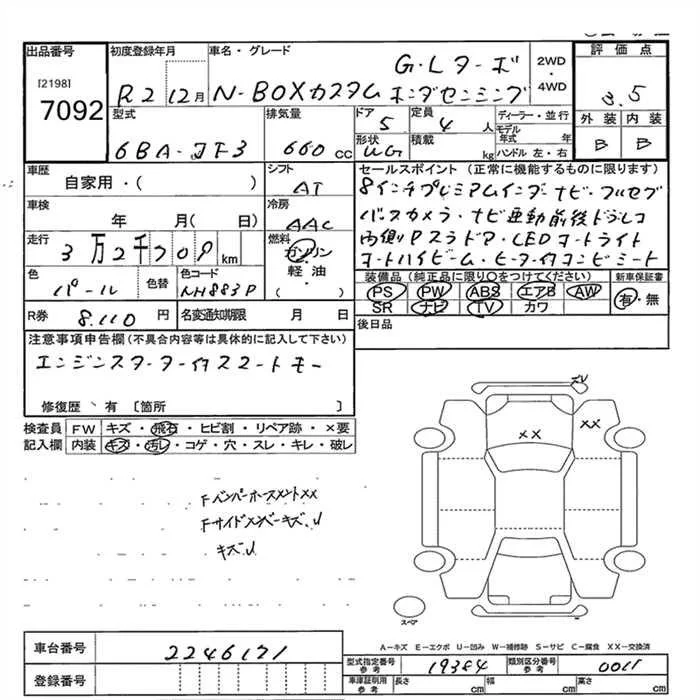 出品番号 初度登録年月 車名・グレード 評価点
[2198] G・Lターボ 2WD・4WD
7092 R2 12月 N-BOXカスタム ホンダセンシング 3.5
型式 排気量 ドア 定員 ディーラー・並行 外装 内装
6BA-JF3 660cc 5 4人 モデル年式 年 B B
形状 積載 ハンドル 左・右
UG kg
車歴 シフト セールスポイント(正常に機能するものに限ります)
自家用・( ) AT 8インチプレミアムインターナビ・フルセグ
車検 冷房 バックカメラ・ナビ連動前後ドラレコ
年 月( 日) AAC 内側Pスラドア・LEDオートライト
走行 燃料 オートハイビーム・ヒーター付コンビシート
3万2千 km ガソリン
軽・油
( )
色 色替 色コード 装備品(純正品に限り○をつけてください) 新車保証書
パール NH883P PS PW ABS エアB AW 有・無
SR ナビ TV カワ
R券 8.110円 名変通知期限 月 日 後日品
注意事項申告欄(不具合内容等は具体的に記入して下さい)
エンジンスターター付スマートキー
修復歴・有〔箇所 〕
検査員 FW キズ・飛石・ヒビ割・リペア跡・×要
記入欄 内装 キズ・汚レ・コゲ・穴・スレ・キレ・破レ
XX
XX
FバンパーホースメントXX
Fサイドメンバーキズ、U
キズU
スペア
A-キズ E-エクボ U-凹み W-補修跡 S-サビ C-腐食 XX-交換済
車台番号 2246171 型式指定番号 参考 19384 類別区分番号 参考 0011
登録番号 車庫証明用 参考 長さ cm 幅 cm 高さ cm